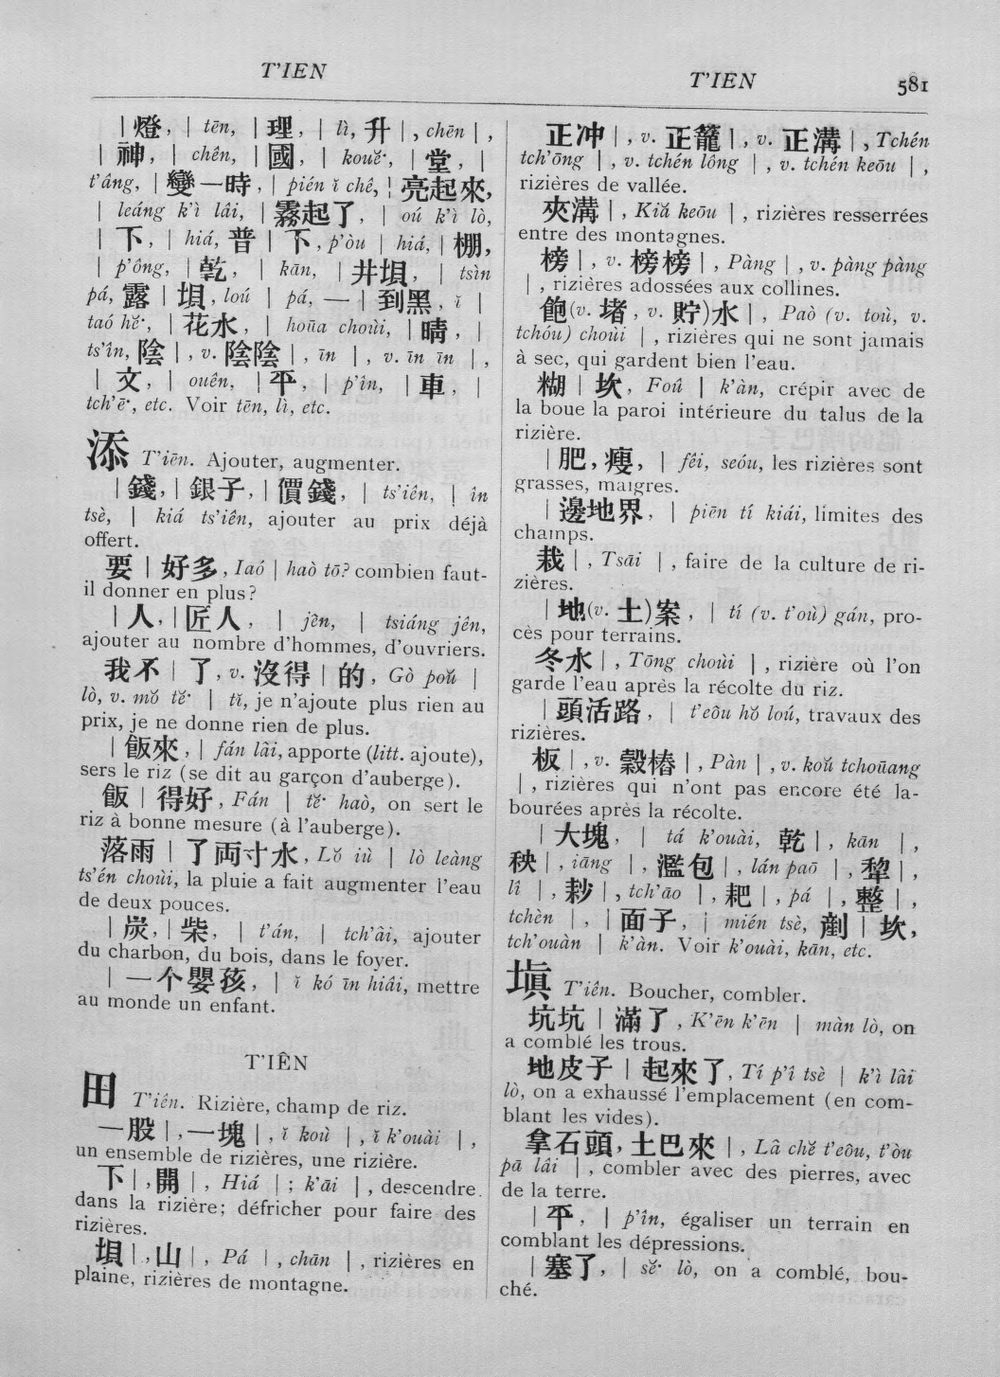 T'IEN
T'IEN
581
| 燈, | tēn, | 理, | lì, 升 | , chēn | ,
| 神, | chên, | 國, | kouĕ·, | 堂, |
t'âng, | 變一時, | pién ĭ chê, | 亮起來,
| leáng k'ì lâi, | 霧起了, | oú k'ì lò,
| 下, | hiá, 普 | 下, p'òu | hiá, | 棚,
| p'ông, | 乾, | kān, | 井埧, | tsìn
pá, 露 | 埧, loú | pá, 一 | 到黑, ĭ |
taó hĕ·, | 花水, | hoūa choùi, | 晴, |
ts'în, 陰 | , v. 陰陰 | , īn | , v. īn īn | ,
| 文, | ouên, | 平, | p'în, | 車, |
tch'ē·, etc. Voir tēn, lì, etc.
添 T'iēn. Ajouter, augmenter.
| 錢, | 銀子, | 價錢, | ts'iên, | în
tsè, | kiá ts'iên, ajouter au prix déjà
offert.
要 | 好多, Iaó | haò tō? combien faut-
il donner en plus?
| 人, | 匠人, | jên, | tsiáng jên,
ajouter au nombre d'hommes, d'ouvriers.
我不 | 了, v. 沒得 | 的, Gò poŭ |
lò, v. mŏ tĕ· | tĭ, je n'ajoute plus rien au
prix, je ne donne rien de plus.
| 飯來, | fán lâi, apporte (litt. ajoute),
sers le riz (se dit au garçon d'auberge).
飯 | 得好, Fán | tĕ· haò, on sert le
riz à bonne mesure (à l'auberge).
落雨 | 了両寸水, Lŏ iù | lò leàng
ts'én choùi, la pluie a fait augmenter l'eau
de deux pouces.
| 炭, | 柴, | t'án, | tch'âi, ajouter
du charbon, du bois, dans le foyer.
| 一个嬰孩, | ĭ kó īn hiâi, mettre
au monde un enfant.
T'IÊN
田 T'iên. Rizière, champ de riz.
一股 | , 一塊 | , ĭ koù | , ĭ k'ouài | ,
un ensemble de rizières, une rizière.
下 | , 開 | , Hiá | ; k'āi | , descendre
dans la rizière; défricher pour faire des
rizières.
埧 | , 山 | , Pá | , chān | , rizières en
plaine, rizières de montagne.
正冲 | , v. 正籠 | , v. 正溝 | , Tchén
tch'ōng | , v. tchén lông | , v. tchén keōu | ,
rizières de vallée.
夾溝 | , Kiă keōu | , rizières resserrées
entre des montagnes.
榜 | , v. 榜榜 | , Pàng | , v. pàng pàng
| , rizières adossées aux collines.
飽(v. 堵, v. 貯)水 | , Paò (v. toù, v.
tchóu) choùi | , rizières qui ne sont jamais
à sec, qui gardent bien l'eau.
糊 | 坎, Foû | k'àn, crépir avec de
la boue la paroi intérieure du talus de la
rizière.
| 肥, 瘦, | fêi, seóu, les rizières sont
grasses, maigres.
| 邊地界, | piēn tí kiái, limites des
champs.
栽 | , Tsāi | , faire de la culture de ri-
zières.
| 地(v. 土)案, | tí (v. t'où) gán, pro-
cès pour terrains.
冬水 | , Tōng choùi | , rizière où l'on
garde l'eau après la récolte du riz.
| 頭活路, | t'eôu hŏ loú, travaux des
rizières.
板 | , v. 穀樁 | , Pàn | , v. koŭ tchoūang
| , rizières qui n'ont pas encore été la-
bourées après la récolte.
| 大塊, | tá k'ouài, 乾 | , kān | ,
秧 | , iāng | , 濫包 | , lán paō | , 犂 | ,
lî | , 耖 | , tch'āo | , 耙 | , pá | , 整 | ,
tchèn | , | 面子, | mién tsè, 剷 | 坎,
tch'ouàn | k'àn. Voir k'ouài, kān, etc.
塡 T'iên. Boucher, combler.
坑坑 | 滿了, K'ēn k'ēn | màn lò, on
a comblé les trous.
地皮子 | 起來了, Tí p'î tsè | k'ì lâi
lò, on a exhaussé l'emplacement (en com-
blant les vides).
拿石頭, 土巴來 | , Lâ chĕ t'eôu, t'òu
pā lâi | , combler avec des pierres, avec
de la terre.
| 平, | p'în, égaliser un terrain en
comblant les dépressions.
| 塞了, | sĕ· lò, on a comblé, bou-
ché.